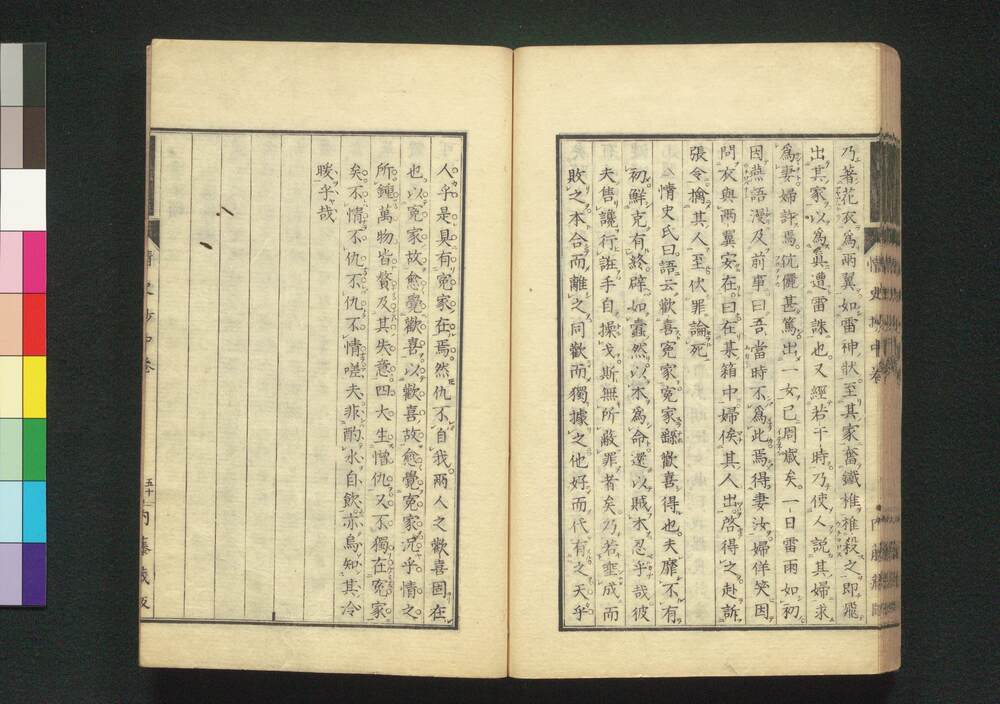 乃著花衣爲兩翼如雷神狀至其家奮鐵椎椎殺之即飛
出其家以爲眞遭雷誅也又經若干時乃使人説其婦求
爲妻婦許焉伉儷甚篤出一女已周歲矣一日雷雨如初
因燕語漫及前事曰吾當時不爲此焉得妻汝婦佯笑因
問衣與兩翼安在曰在某箱中婦俟其人出啓得之赴訴
張令擒其人至伏罪論死
情史氏曰語云歡喜冤家冤家繇歡喜得也夫靡不有
初鮮克有終辟如蠹然以木爲命還以賊木忍乎哉彼
夫售讒行誑手自操戈斯無所蔽罪者矣乃若垂成而
敗之本合而離之同歡而獨據之他好而代有之天乎
人乎是具有冤家在焉然仇不自我兩人之歡喜固在
也以冤家故愈覺歡喜以歡喜故愈覺冤家況乎情之
所鍾萬物皆贅及其失意四大生憎仇又不獨在冤家
矣不情不仇不仇不情嗟夫非酌水自飲亦烏知其冷
暖乎哉
情史抄中卷
五十一
内藤藏版